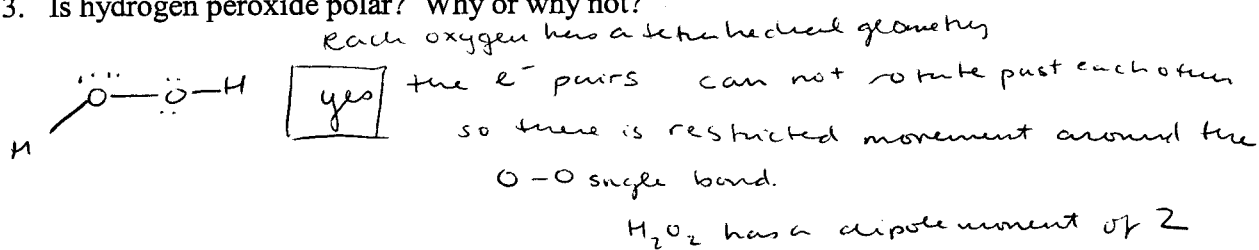 3. Is hydrogen peroxide polar? Why or why not?
each oxygen has a tetrahedral geometry
O—O—H
yes
the e⁻ pairs can not rotate past each other
H
so there is restricted movement around the
O-O single bond.
H₂O₂ has a dipole moment of 2